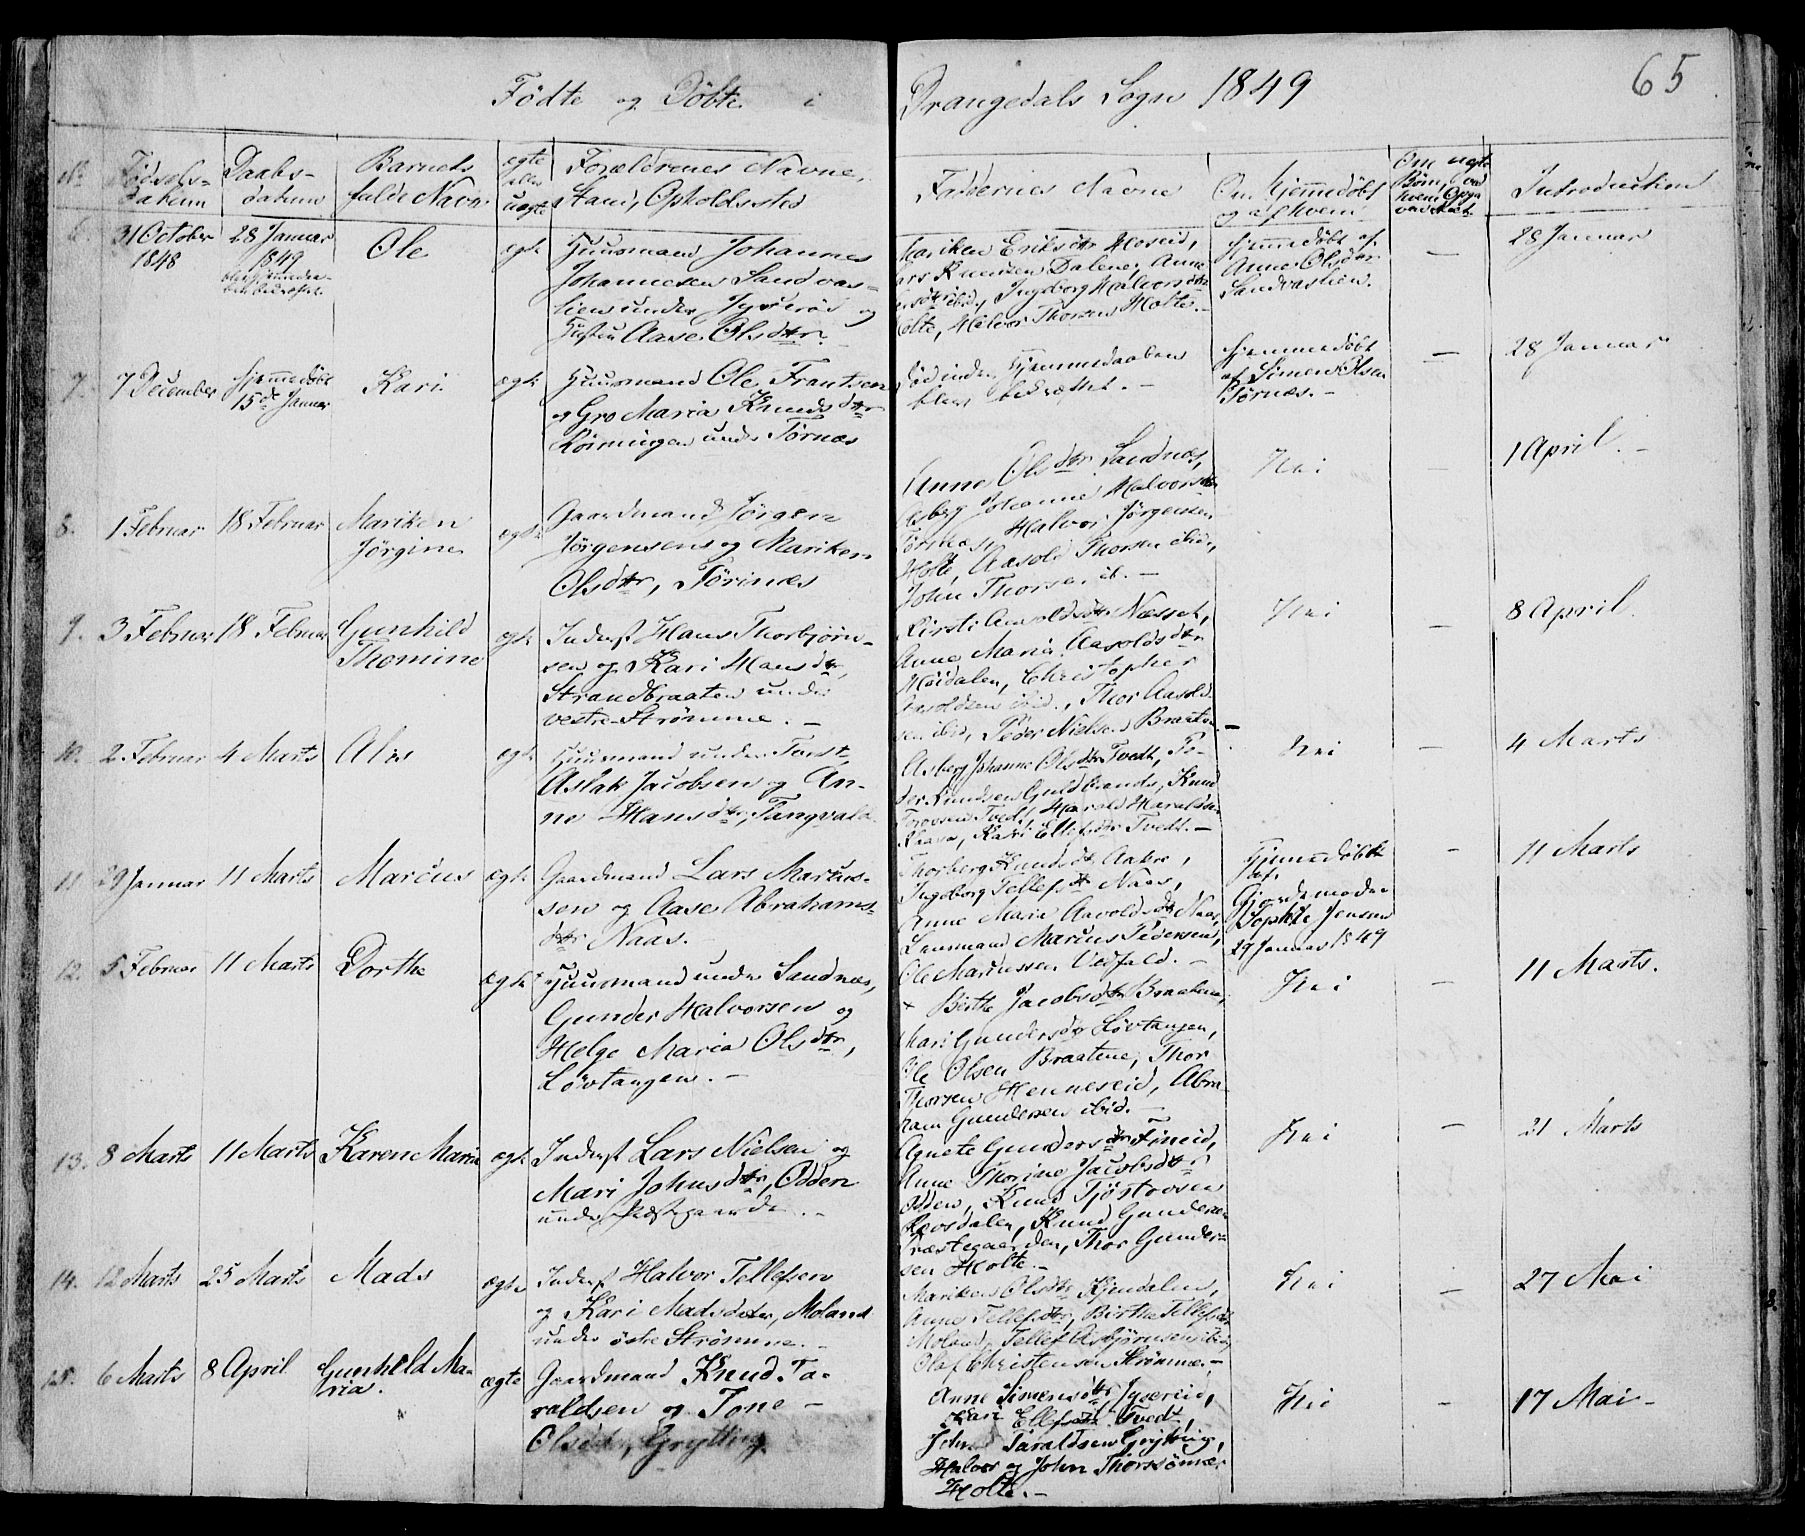 Fødte og Døbte i Drangedals Sogn 1849
65
No
Fødsels-
datum
Daabs-
datum
Barnets
fulde Navn
ægte
eller
uægte
Forældrenes Navne,
Stand, Opholdssted
Faddernes Navne
Om hjemmedøbt
og af hvem
Introduction
6.
31 October
1848
28 Januar
1849
Ole
ægte
Huusmand Johannes
Johannesen Sandvas-
lien under
og
Hustru Aase Olsdtr.
Mariken Eriksdtr Moseid,
Lars Knudsen Dalene, Anne
Ingeborg Halvorsdtr
Holte, Halvor Thorsen Holte.
hjemmedøbt af
Anne Olsdtr
Sandvaslien.
—
28 Januar
7.
7 December
hjemmedøbt
15de Januar
Kari
ægte
Huusmand Ole Frantsen
og Gro Maria Knudsdtr
under Tørnæs
Død inden Hjemmedaaben
blev bekræftet. —
hjemmedøbt
af Simen Olsen
Tørnæs. —
—
28 Januar
8.
1 Februar
18 Februar
Mariken
Jørgine
ægte
Gaardmand Jørgen
Jørgensen og Mariken
Olsdtr, Tørnæs
Anne Olsdtr Sandnæs,
Asberg Johanne Halvorsdtr
Tørnæs, Halvor Jørgensen
Holte, Aasold Thorsen ibid,
John Thorsen ib. —
Nei
—
1 April. —
9.
3 Februar
18 Februar
Gunhild
Thomine
ægte
Inderst Hans Thorbjørn-
sen og Kari Hansdtr,
Strandbraaten under
vestre Strømme. —
Kirsti Aasoldsdtr Næsset,
Anne Maria Aasoldsdtr
Heidalen, Christopher
Aasoldsen ibid., Thor Aasold-
sen ibid, Peder Nielsen Braaten —
Nei
—
8 April.
10.
2 Februar
4 Marts
Alis
ægte
Huusmand under Tveit,
Aslak Jacobsen og An-
ne Hansdtr, Tangvald.
Asberg Johanne Olsdtr Tvedt, Pe-
der Knudsen Guldbrands, Knud
Tovsen Tvedt, Harald Haralds
Kari Ellefsdtr Tvedt. —
Nei
—
4 Marts
11
29 Januar
11 Marts
Marcus
ægte
Gaardmand Lars Marcus-
sen og Aase Abrahams-
dtr Naas. —
Thorberg Knudsdtr Aakre,
Ingeborg Tellefsdtr Naas,
Anne Marie Aavoldsdtr Naas,
Lensmand Marcus Pedersen,
Ole Marcussen Vedfald. —
Hjemmedøbt
af
Gjordemoder
Sophie Jensen
29 Januar 1849
—
11 Marts
12.
5 Februar
11 Marts
Dorthe
ægte
Huusmand under Sandnæs,
Gunder Halvorsen og
Helge Maria Olsdtr,
Løvtangen. —
Berthe Jacobsdtr Braatene,
Mari Gundersdtr Løvtangen,
Ole Olsen Braatene, Thor
Thorsen Henneseid, Abra-
ham Gundersen ibid. —
Nei
—
11 Marts.
13.
8 Marts
11 Marts
Karen Maria
ægte
Inderst Lars Nielsen og
Mari Johnsdtr, Odden
under Præstegaarden. —
Agnete Gundersdtr Fineid,
Anne Thorine Jacobsdtr
Odden, Knud Tjøstovsen
Knud Gundersen
Præstegaarden, Thor Gunder-
sen Holte. —
Nei
—
21 Marts
14.
12 Marts
25 Marts
Mads
ægte
Inderst Halvor Tellefsen
og Kari Madsdatter, Moland
under østre Strømme. —
Mariken Olsdtr Kjendalen,
Anne Tellefsdtr, Birthe Tellefsdtr
Moland, Tellef Asbjørnsen ibid,
Olaf Christensen Strømme. —
Nei
—
27 Mai
15.
6 Marts
8 April
Gunhild Ma-
ria.
ægte
Gaardmand Knud Ta-
raldsen og Tone —
Olsdtr, Grytting
Anne Simensdtr Jysereid,
Kari Ellefsdtr Tvedt,
John Taraldsen Grytting,
Halvor og John Thorssønner
Holte. —
Nei
—
17 Mai —